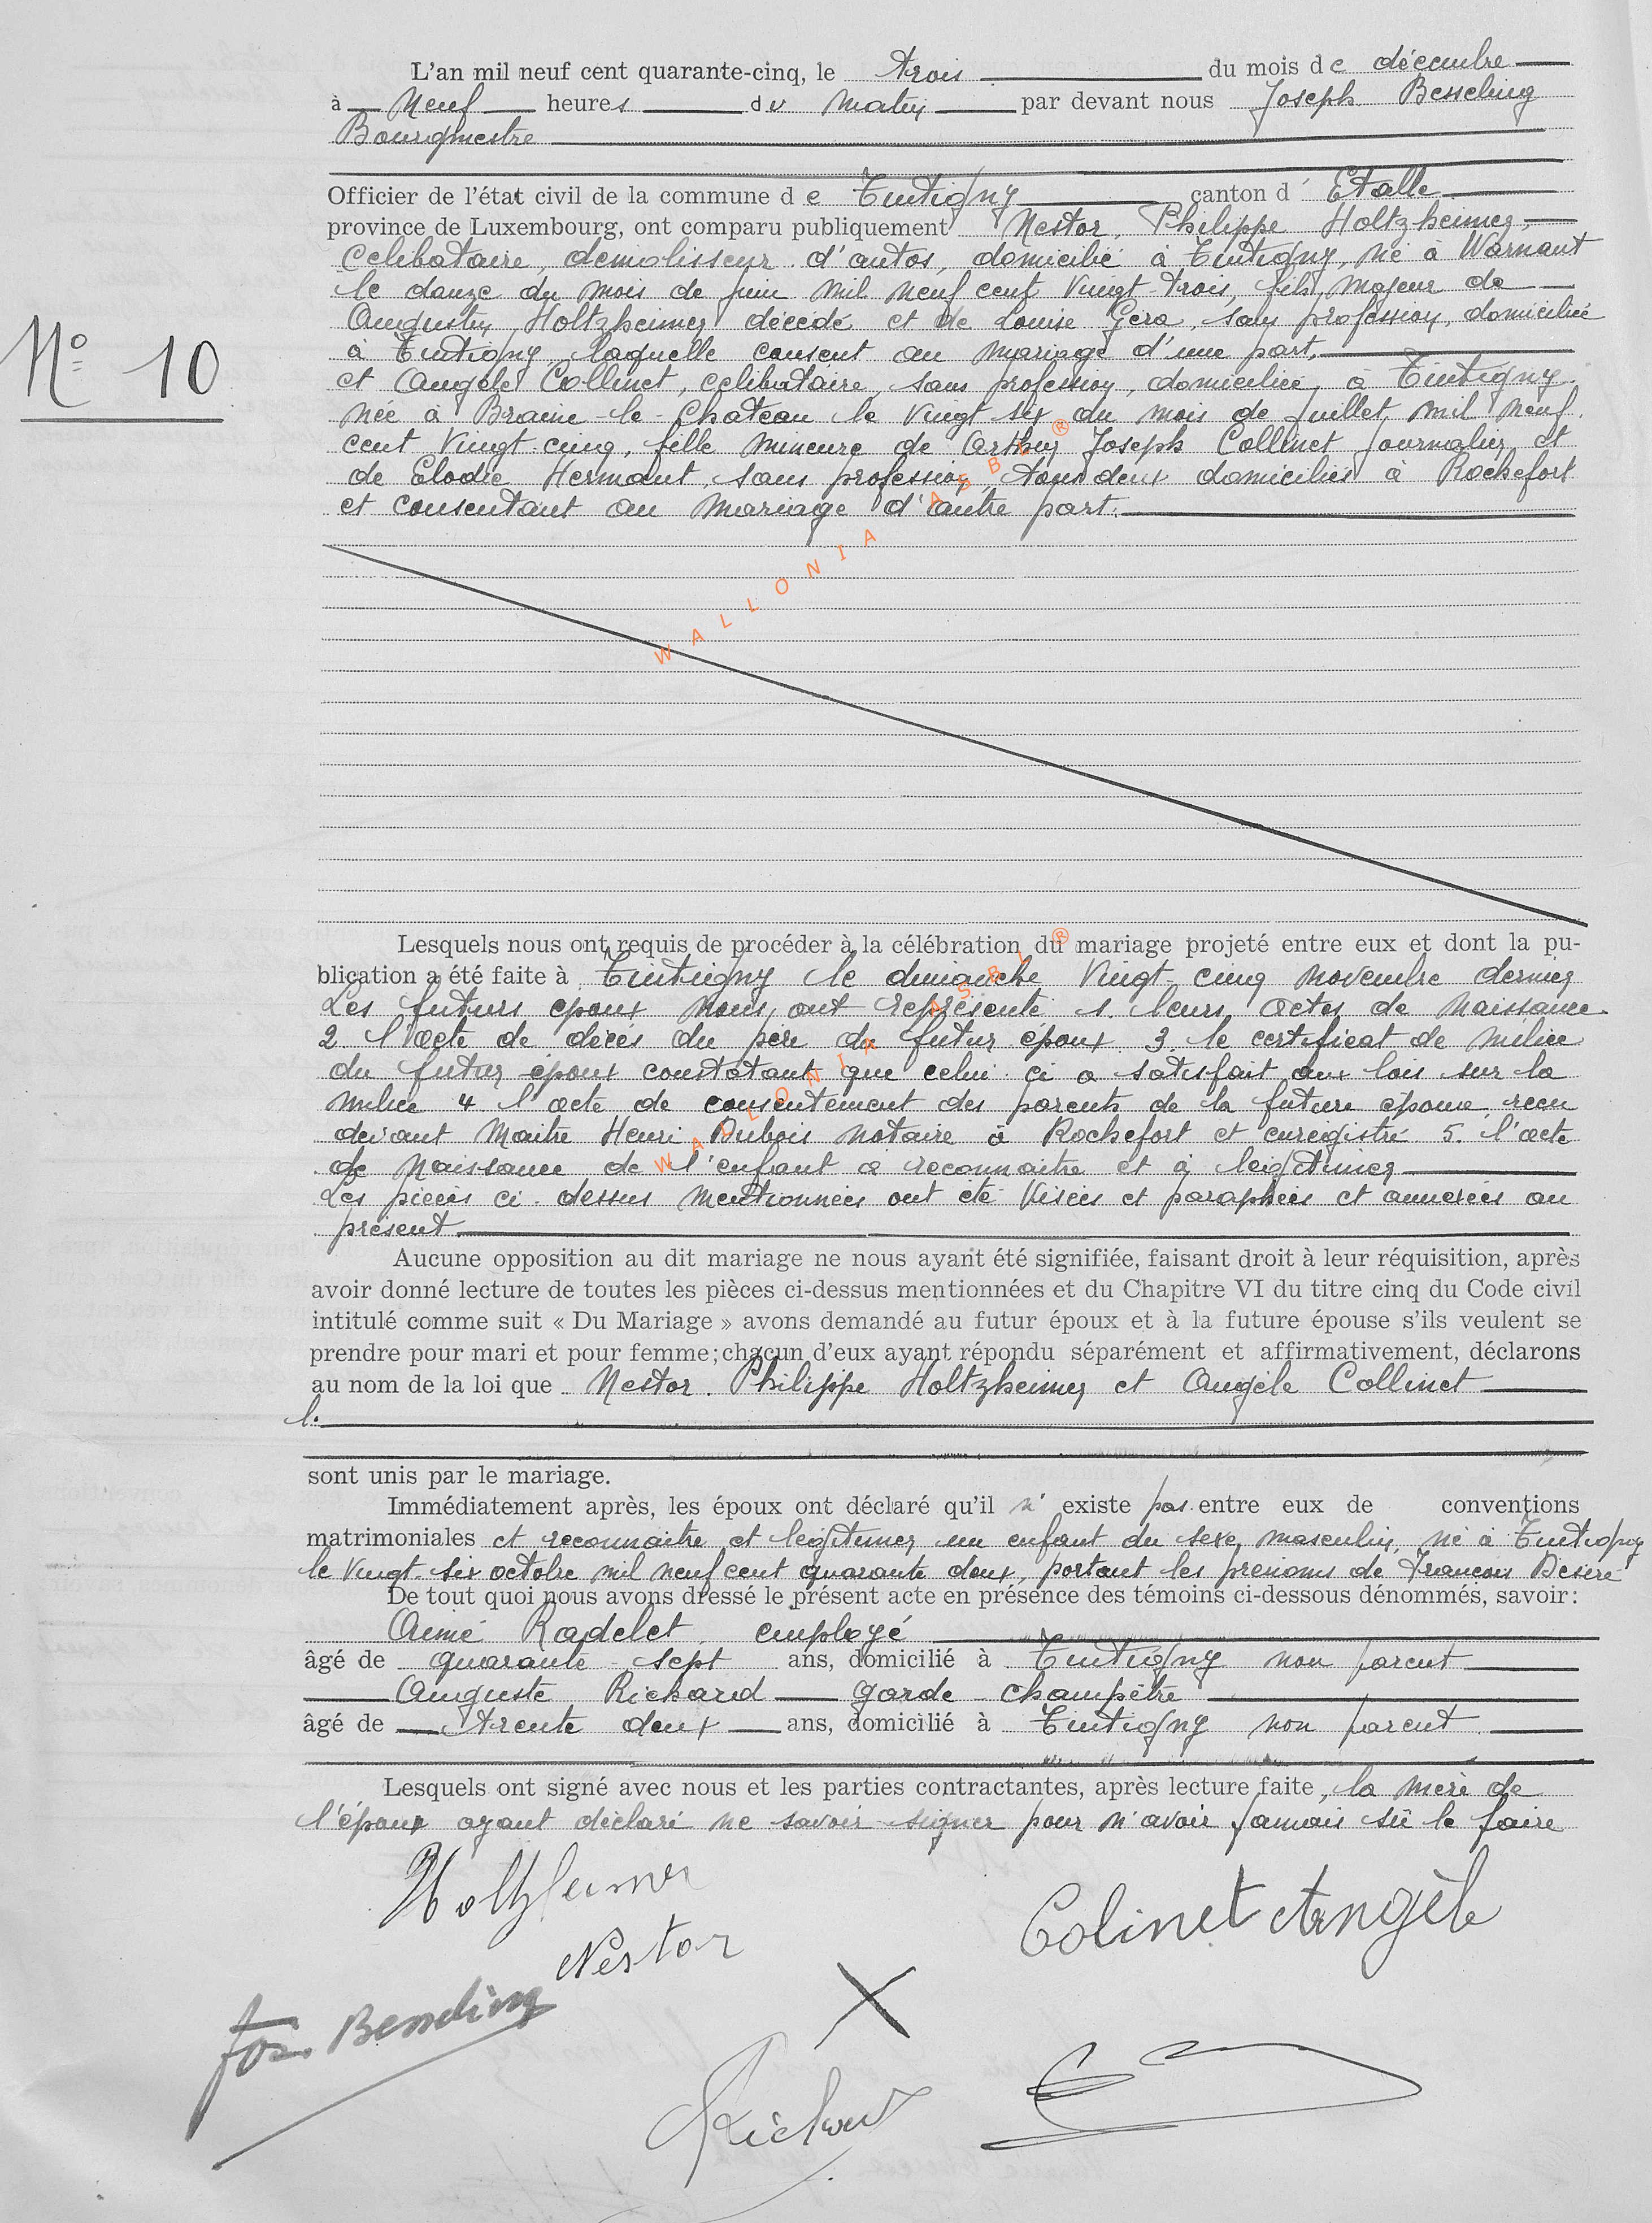 L'an mil neuf cent quarante-cinq, le trois du mois de décembre
à Neuf heures du matin par devant nous Joseph Besseling
Bourgmestre
Officier de l'état civil de la commune de Tintigny canton d'Etalle
province de Luxembourg, ont comparu publiquement Nestor, Philippe Holtzheimer,
Célibataire, démolisseur d'autos, domicilié à Tintigny, né à Warnant
le douze du mois de juin mil neuf cent vingt-trois, fils majeur de
Augustin Holtzheimer décédé et de Louise Gera, sans profession, domiciliée
N° 10
à Tintigny, laquelle consent au mariage d'une part,
et Angèle Collinet, célibataire, sans profession, domiciliée, à Tintigny
née à Braine-le-Chateau le vingt six du mois de juillet mil neuf
cent vingt-cinq, fille mineure de Arthur Joseph Collinet journalier et
de Elodie Hermant, sans profession, tous deux domiciliés à Rochefort
et consentant au mariage d'autre part.
WALLONIA ASBL ®
Lesquels nous ont requis de procéder à la célébration du mariage projeté entre eux et dont la pu-
blication a été faite à Tintigny le dimanche vingt-cinq novembre dernier
Les futurs époux nous ont représenté 1. leurs actes de naissance
2. l'acte de décès du père du futur époux 3. le certificat de milice
du futur époux constatant que celui-ci a satisfait aux lois sur la
milice 4 l'acte de consentement des parents de la future épouse reçu
devant Maître Henri Dubois notaire à Rochefort et enregistré 5. l'acte
de naissance de l'enfant à reconnaitre et à légitimer
WALLONIA ASBL ®
Les pièces ci-dessus mentionnées ont été visées et paraphées et annexées au
présent
Aucune opposition au dit mariage ne nous ayant été signifiée, faisant droit à leur réquisition, après
avoir donné lecture de toutes les pièces ci-dessus mentionnées et du Chapitre VI du titre cinq du Code civil
intitulé comme suit « Du Mariage » avons demandé au futur époux et à la future épouse s'ils veulent se
prendre pour mari et pour femme; chacun d'eux ayant répondu séparément et affirmativement, déclarons
au nom de la loi que Nestor. Philippe Holtzheimer et Angèle Collinet
sont unis par le mariage.
Immédiatement après, les époux ont déclaré qu'il n'existe pas entre eux de conventions
matrimoniales et reconnaitre et légitimer un enfant du sexe masculin, né à Tintigny
le vingt-six octobre mil neuf cent quarante deux, portant les prénoms de François Désiré
De tout quoi nous avons dressé le présent acte en présence des témoins ci-dessous dénommés, savoir:
Aimé Radelet employé
âgé de quarante-sept ans, domicilié à Tintigny non parent
Auguste Richard garde champêtre
âgé de trente deux ans, domicilié à Tintigny non parent
Lesquels ont signé avec nous et les parties contractantes, après lecture faite, la mère de
l'époux ayant déclaré ne savoir signer pour n'avoir jamais sû le faire
Holtzheimer
Nestor
Colinet Angèle
Jos. Besseling
X
Richard